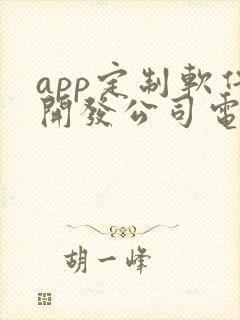 app定制軟件
開發公司電
胡一峰